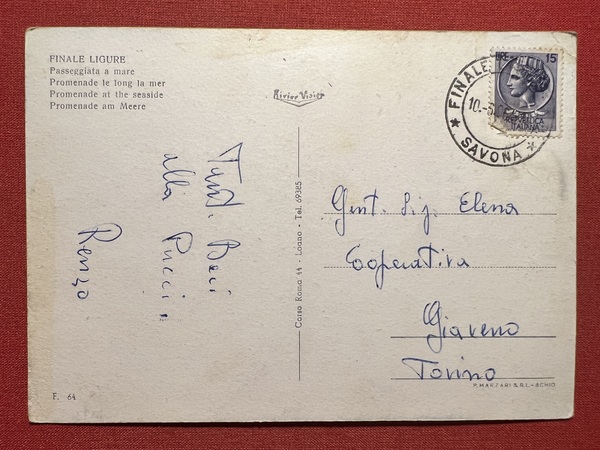 FINALE LIGURE
Passeggiata a mare
Promenade le long la mer
Promenade at the seaside
Promenade am Meere
Rivier Vision
LIRE 15
REPUBBLICA
ITALIANA
* FINALE
10.
SAVONA *
Tanti Baci
alla Puccia
Renzo
Corso Roma 44 - Loano - Tel. 69385
Gent. Sig. Elena
Cooperativa
Giaveno
Torino
P. MARZARI S.R.L.-SCHIO
F. 64